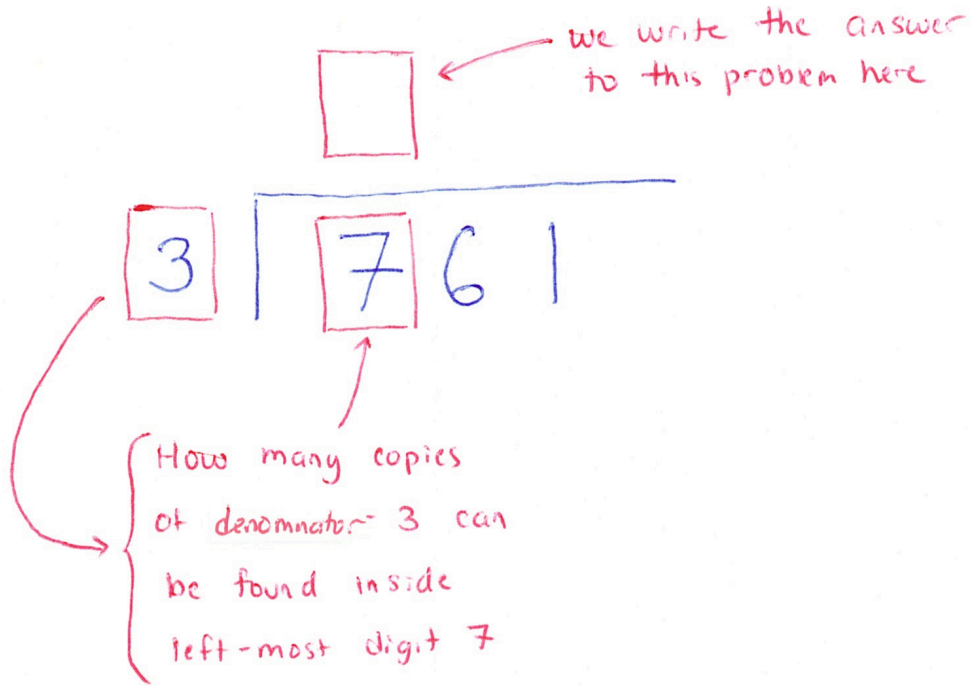 we write the answer
to this problem here
3 7 6 1
How many copies
of denomnator 3 can
be found inside
left-most digit 7